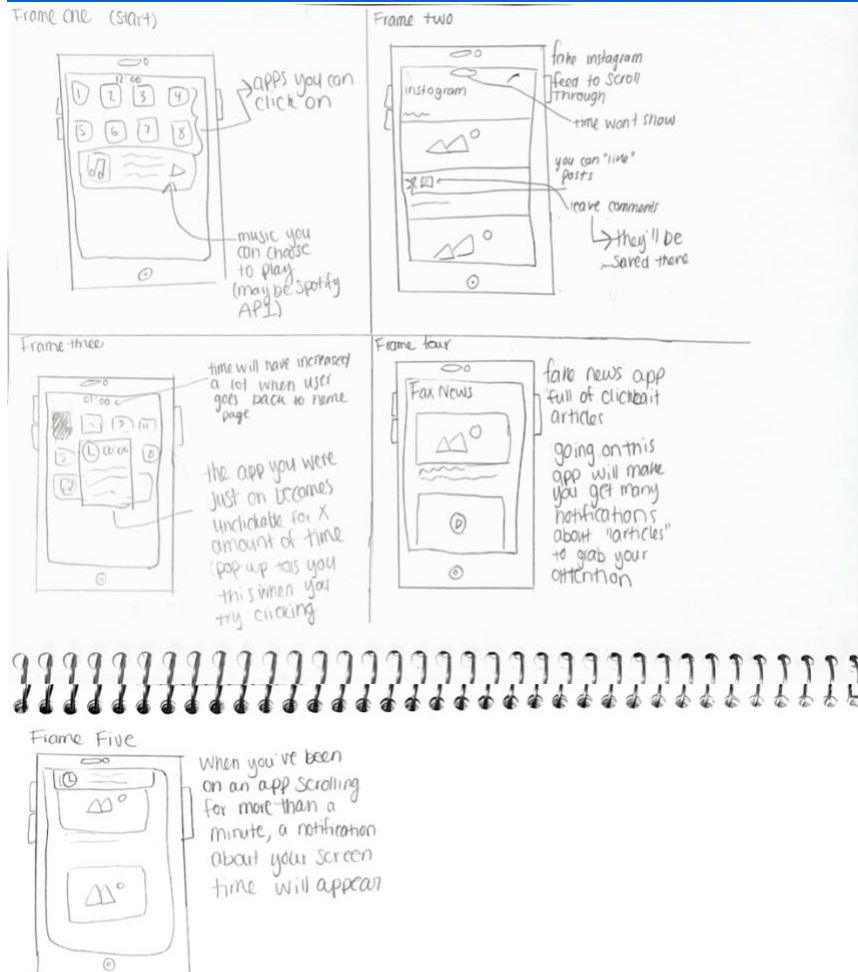 Frame One (start)
12:00
1 2 3 4
5 6 7 8
apps you can
click on
music you
can choose
to play
(maybe Spotify
API)
Frame two
instagram
fake instagram
feed to scroll
through
time wont show
you can "like"
posts
leave comments
they'll be
saved there
Frame three
01:00
time will have increased
a lot when user
goes back to home
page
00:00
the app you were
just on becomes
unclickable for X
amount of time
(pop up tells you
this when you
try clicking
Frame four
Fax News
fake news app
full of clickbait
articles
going on this
app will make
you get many
notifications
about "articles"
to grab your
attention
Frame Five
When you've been
on an app scrolling
for more than a
minute, a notification
about your screen
time will appear